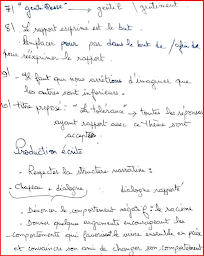 7) "gentillesse" → gentil / gentiment
8) Le rapport exprimé est le but.
Remplacer pour par dans le but de / afin de
pour réexprimer le rapport.
9) Il faut que nous arrêtions d'imaginer que
les autres sont inférieurs.
10) Titre proposé : "La tolérance → toutes les réponses
ayant rapport avec ce thème sont
acceptées
Production écrite
- Respecter la structure narrative :
- Chapeau + dialogue dialogue rapporté
- Dénoncer le comportement négatif : le racisme
- Donner quelques arguments encourageant les
comportements qui favorisent le vivre ensemble en paix
et convaincre son ami de changer son comportement